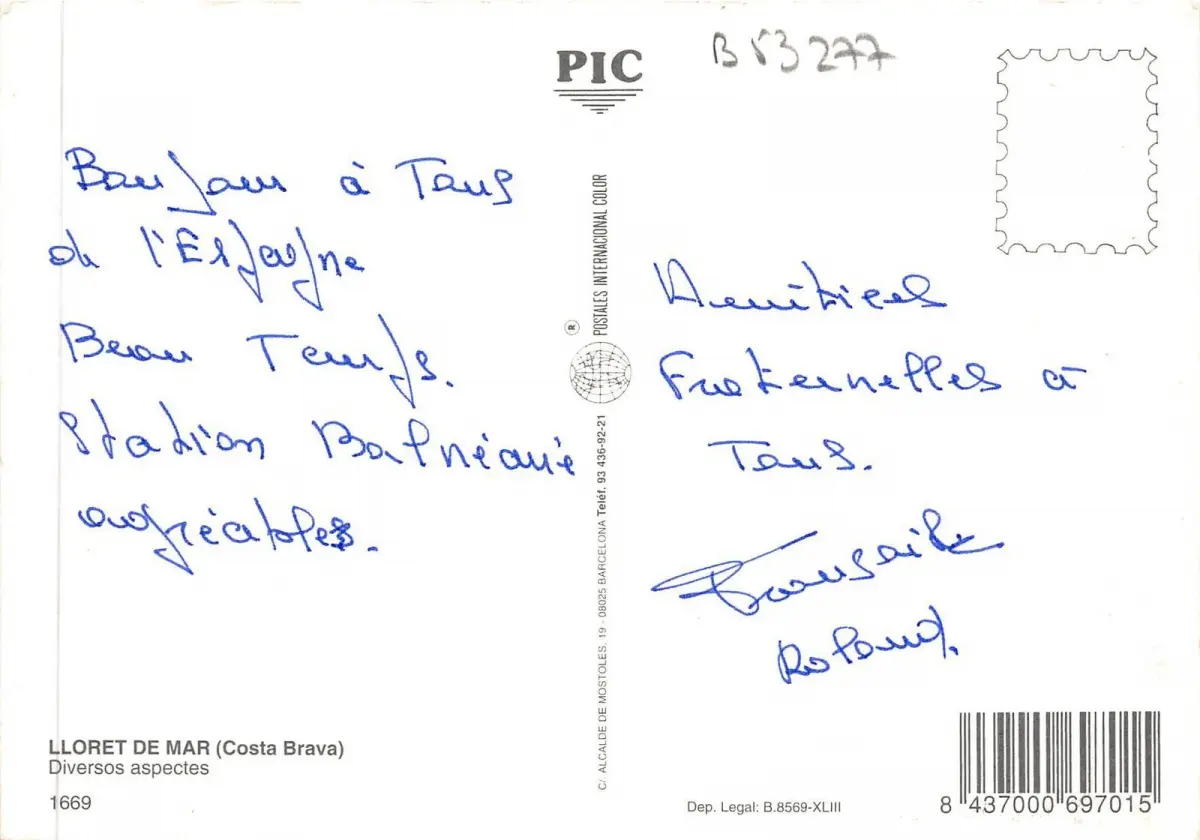 PIC
B 53277
Bonjour à Tous
de l'Espagne
Beau Temps.
Station Balnéaire
agréables.
Amitiés
Fraternelles à
Tous.
Roland.
POSTALES INTERNACIONAL COLOR
®
C/ ALCALDE DE MOSTOLES, 19 - 08025 BARCELONA Teléf. 93 436-92-21
LLORET DE MAR (Costa Brava)
Diversos aspectes
1669
Dep. Legal: B.8569-XLIII
8 437000 697015